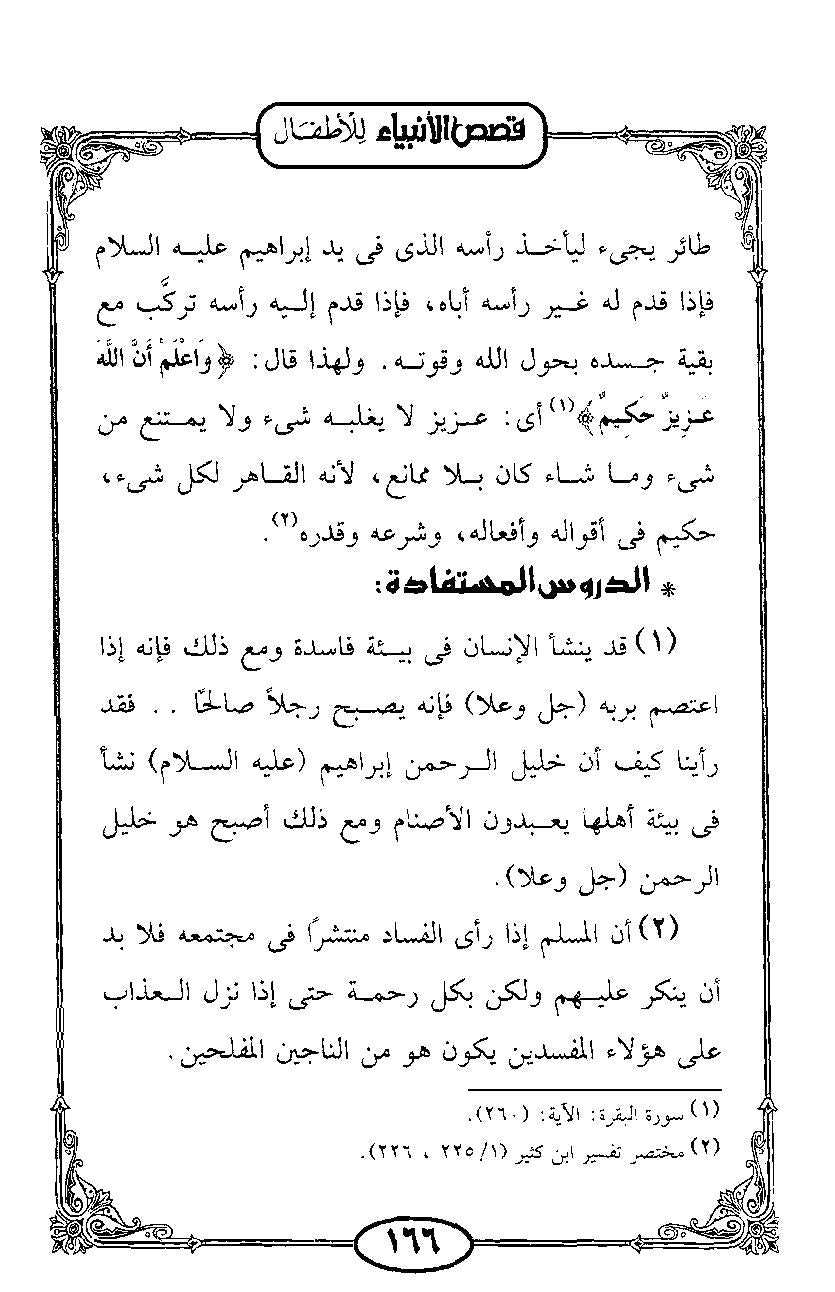 قصص الأنبياء لِلْأطفال
طائر يجىء ليأخذ رأسه الذى فى يد إبراهيم عليه السلام
فإذا قدم له غير رأسه أباه، فإذا قدم إليه رأسه تركَّب مع
بقية جسده بحول الله وقوته. ولهذا قال: ﴿وَاعْلَمْ أَنَّ اللَّهَ
عَزِيزٌ حَكِيمٌ﴾(١) أى: عزيز لا يغلبه شىء ولا يمتنع من
شىء وما شاء كان بلا ممانع، لأنه القاهر لكل شىء،
حكيم فى أقواله وأفعاله، وشرعه وقدره(٢).
* الدروس المستفادة:
(١) قد ينشأ الإنسان فى بيئة فاسدة ومع ذلك فإنه إذا
اعتصم بربه (جل وعلا) فإنه يصبح رجلاً صالحًا . . فقد
رأينا كيف أن خليل الرحمن إبراهيم (عليه السلام) نشأ
فى بيئة أهلها يعبدون الأصنام ومع ذلك أصبح هو خليل
الرحمن (جل وعلا).
(٢) أن المسلم إذا رأى الفساد منتشراً فى مجتمعه فلا بد
أن ينكر عليهم ولكن بكل رحمة حتى إذا نزل العذاب
على هؤلاء المفسدين يكون هو من الناجين المفلحين.
(١) سورة البقرة: الآية: (٢٦٠).
(٢) مختصر تفسير ابن كثير (١/ ٢٢٥ ، ٢٢٦).
١٦٦